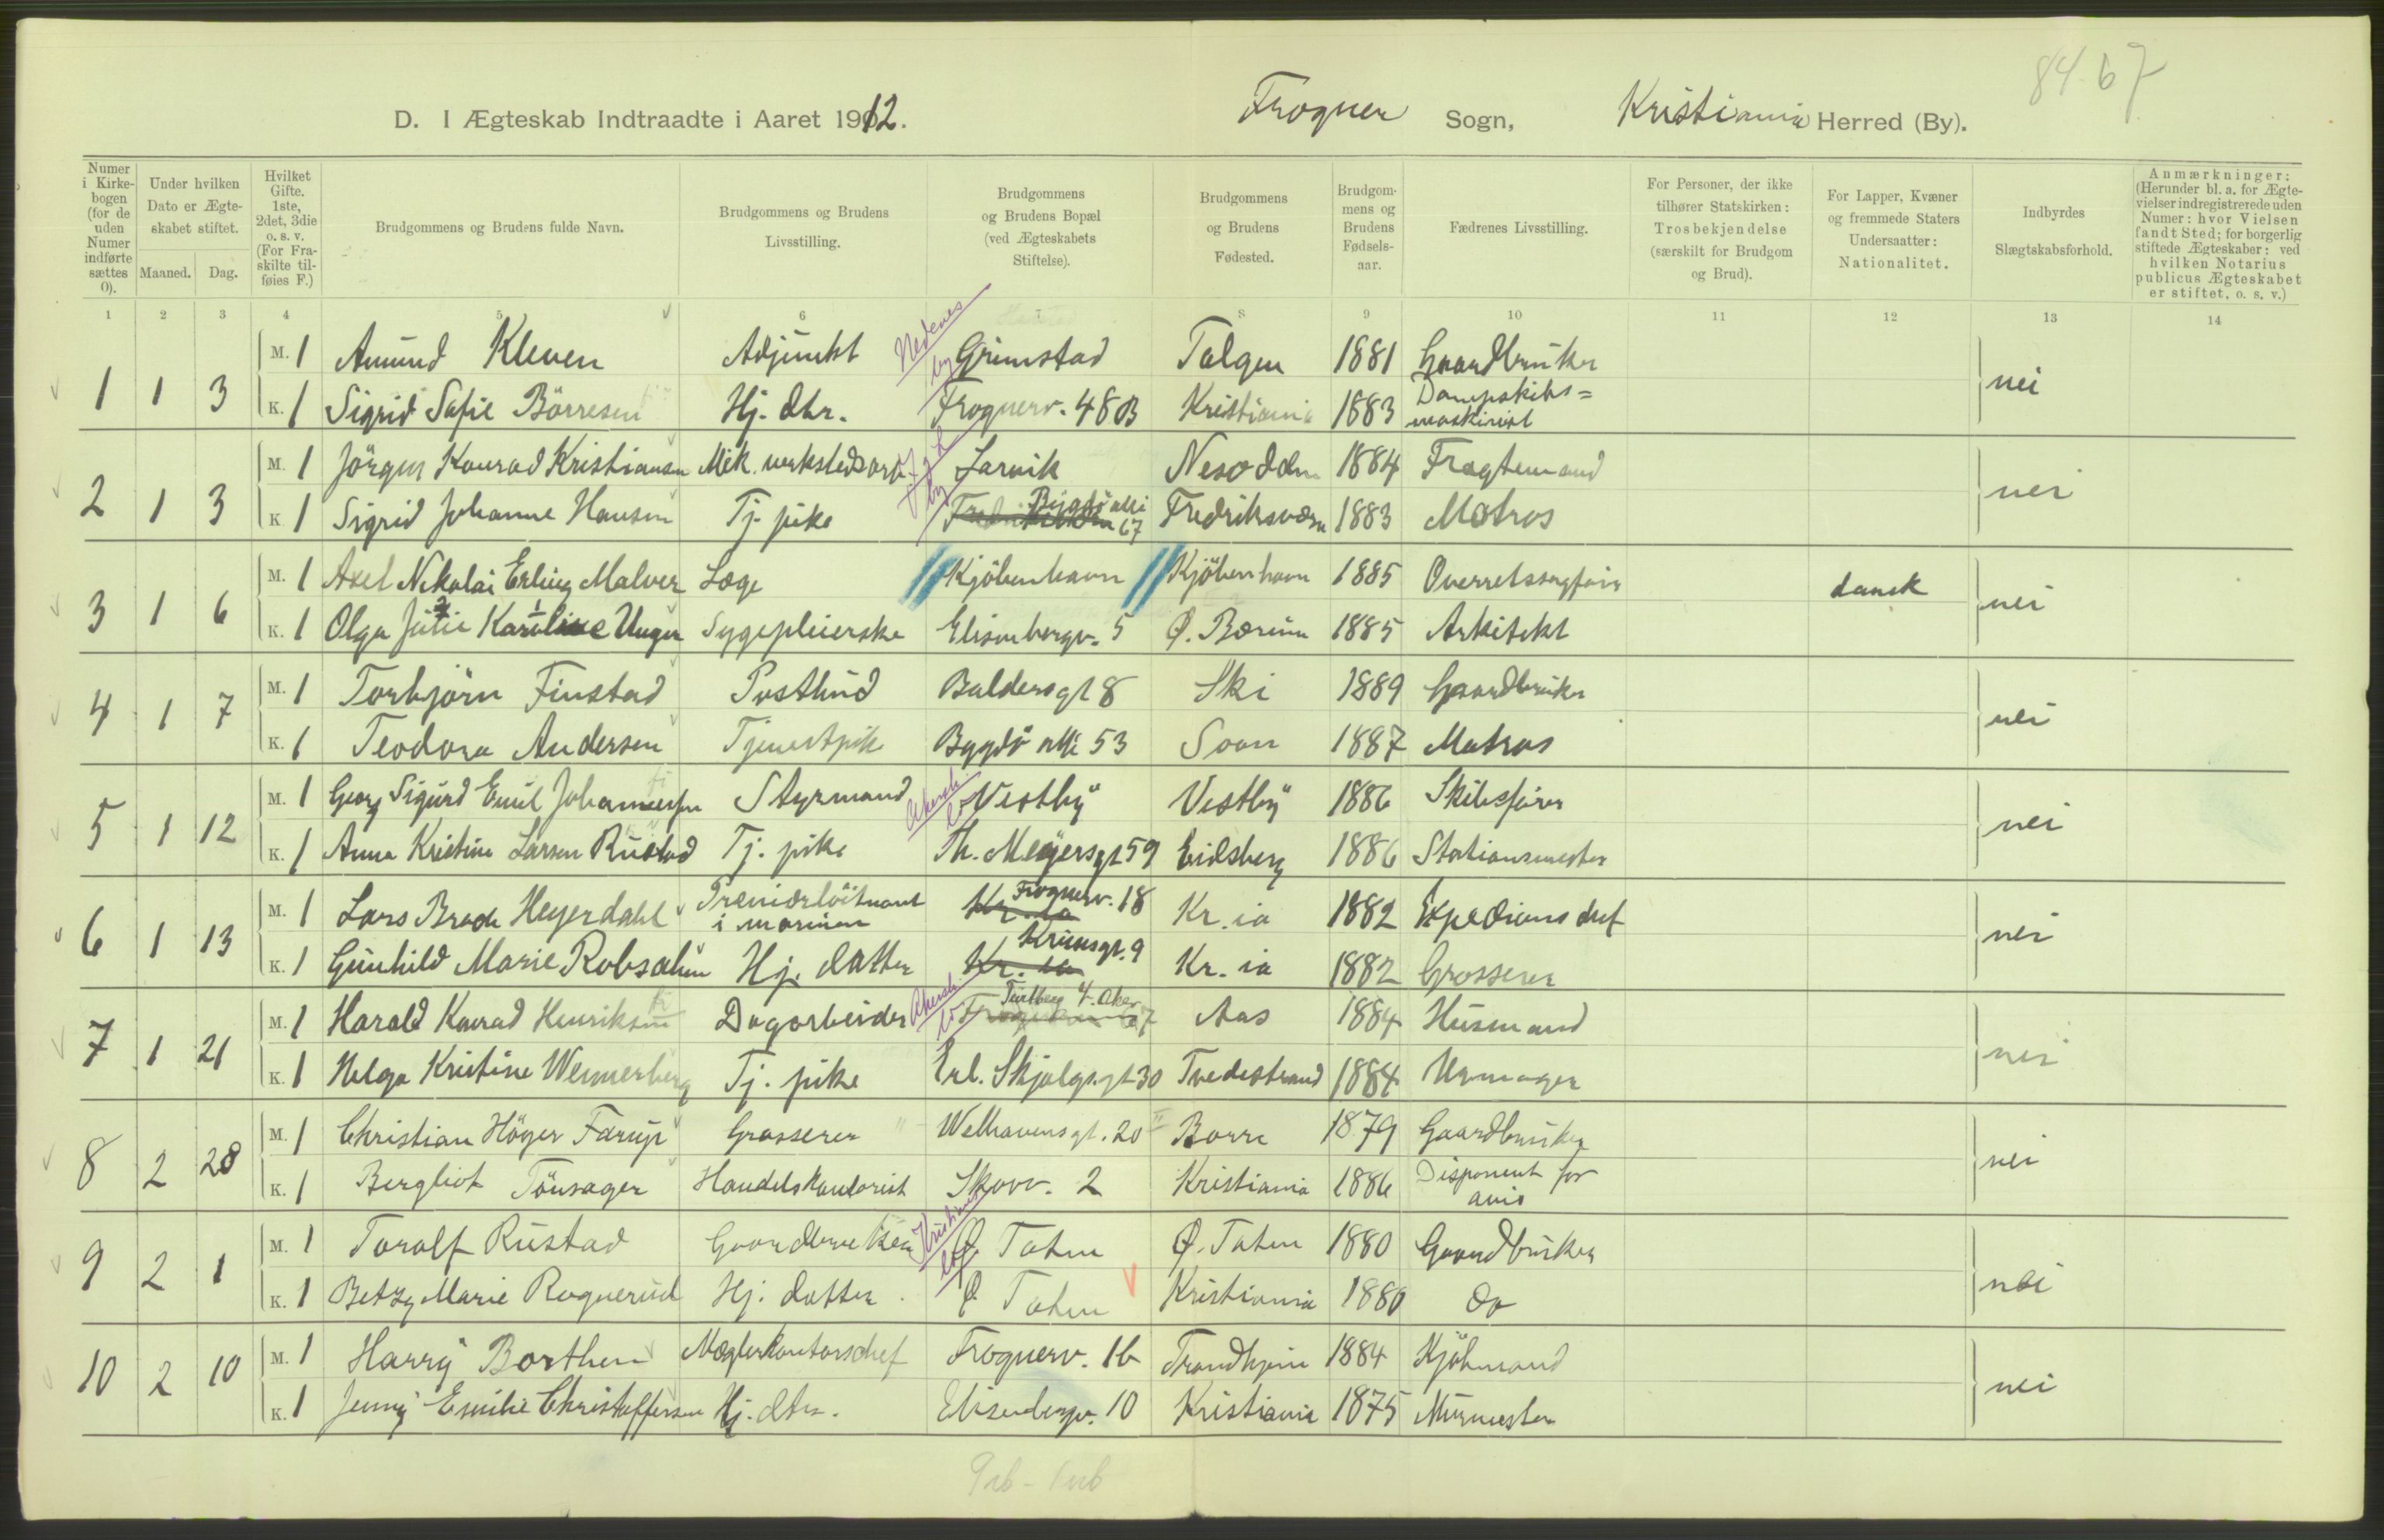 84.67
D. I Ægteskab Indtraadte i Aaret 1912. Frogner Sogn, Kristiania Herred (By).
Numer i Kirkebogen (for de uden Numer indførte sættes 0).
Under hvilken Dato er Ægteskabet stiftet.
Maaned. Dag.
Hvilket Gifte. 1ste, 2det, 3die o. s. v. (For Fraskilte tilføies F.)
Brudgommens og Brudens fulde Navn.
Brudgommens og Brudens Livsstilling.
Brudgommens og Brudens Bopæl (ved Ægteskabets Stiftelse).
Brudgommens og Brudens Fødested.
Brudgommens og Brudens Fødselsaar.
Fædrenes Livsstilling.
For Personer, der ikke tilhører Statskirken: Trosbekjendelse (særskilt for Brudgom og Brud).
For Lapper, Kvæner og fremmede Staters Undersaatter: Nationalitet.
Indbyrdes Slægtskabsforhold.
Anmærkninger: (Herunder bl. a. for Ægtevielser indregistrerede uden Numer: hvor Vielsen fandt Sted; for borgerlig stiftede Ægteskaber: ved hvilken Notarius publicus Ægteskabet er stiftet, o. s. v.)
1 2 3 4 5 6 7 8 9 10 11 12 13 14
1 1 3 M. 1 Amund Kleven Adjunkt Nedenes by Grimstad Tolgen 1881 Gaardbruker nei
K. 1 Sigrid Sofie Börresen Hj. dtr. Frognerv. 48B Kristiania 1883 Dampskibs=maskinist
2 1 3 M. 1 Jörgen Konrad Kristiansen Mek. verkstedsarb. J & L by Larvik Nesodden 1884 Fragtemand nei
K 1 Sigrid Johanne Hansen Tj. pike Bygdö alle 67 Fredriksværn 1883 Matros
3 1 6 M. 1 Axel Nikolai Erling Malver Læge Kjöbenhavn Kjöbenhavn 1885 Overretssagfører dansk nei
K. 1 Olga Julie Karoline Unger Sygepleierske Elisenbergv. 5 Ø. Bærum 1885 Arkitekt
4 1 7 M. 1 Torbjörn Finstad Postbud Baldersgt 8 Ski 1889 Gaardbruker nei
K. 1 Teodora Andersen Tjenestpike Bygdö alle 53 Soon 1887 Matros
5 1 12 M. 1 Georg Sigurd Emil Johannessen Styrmand Akersh. Vestby Vestby 1886 Skibsfører nei
K. 1 Anna Kristine Larsen Rustad Tj. pike Th. Meyersgt 59 Eidsberg 1886 Stationsmester
6 1 13 M. 1 Lars Brede Heyerdahl Premierlöitnant i marinen Kr. ia Frognerv. 18 Kr. ia 1882 Expeditionschef nei
K. 1 Gunhild Marie Robsahm Hj. datter Kr. ia Krumsgt. 9 Kr. ia 1882 Grosserer
7 1 21 M. 1 Harald Konrad Henriksen Dagarbeider Akersh. Aker Aas 1884 Husmand nei
K. 1 Helga Kristine Wennerberg Tj. pike Erl. Skjalgs.gt 30 Tvedestrand 1884 Urmager
8 2 28 M. 1 Christian Höyer Farup Grosserer Welhavensgt. 20 Borre 1879 Gaardbruker nei
K. 1 Bergliot Tönsager Handelskontorist Skovv. 2 Kristiania 1886 Disponent for avis
9 2 1 M. 1 Toralf Rustad Gaardbruker Kristians Ø. Toten Ø. Toten 1880 Gaardbruker nei
K. 1 Betzy Marie Rognerud Hj. datter Ø Toten Kristiania 1880 Do
10 2 10 M. 1 Harry Borthen Mæglerkontorschef Frognerv. 16 Trondhjem 1884 Kjöbmand nei
K. 1 Jenny Emilie Christoffersen Hj. dtr. Elisenbergv. 10 Kristiania 1875 Murmester